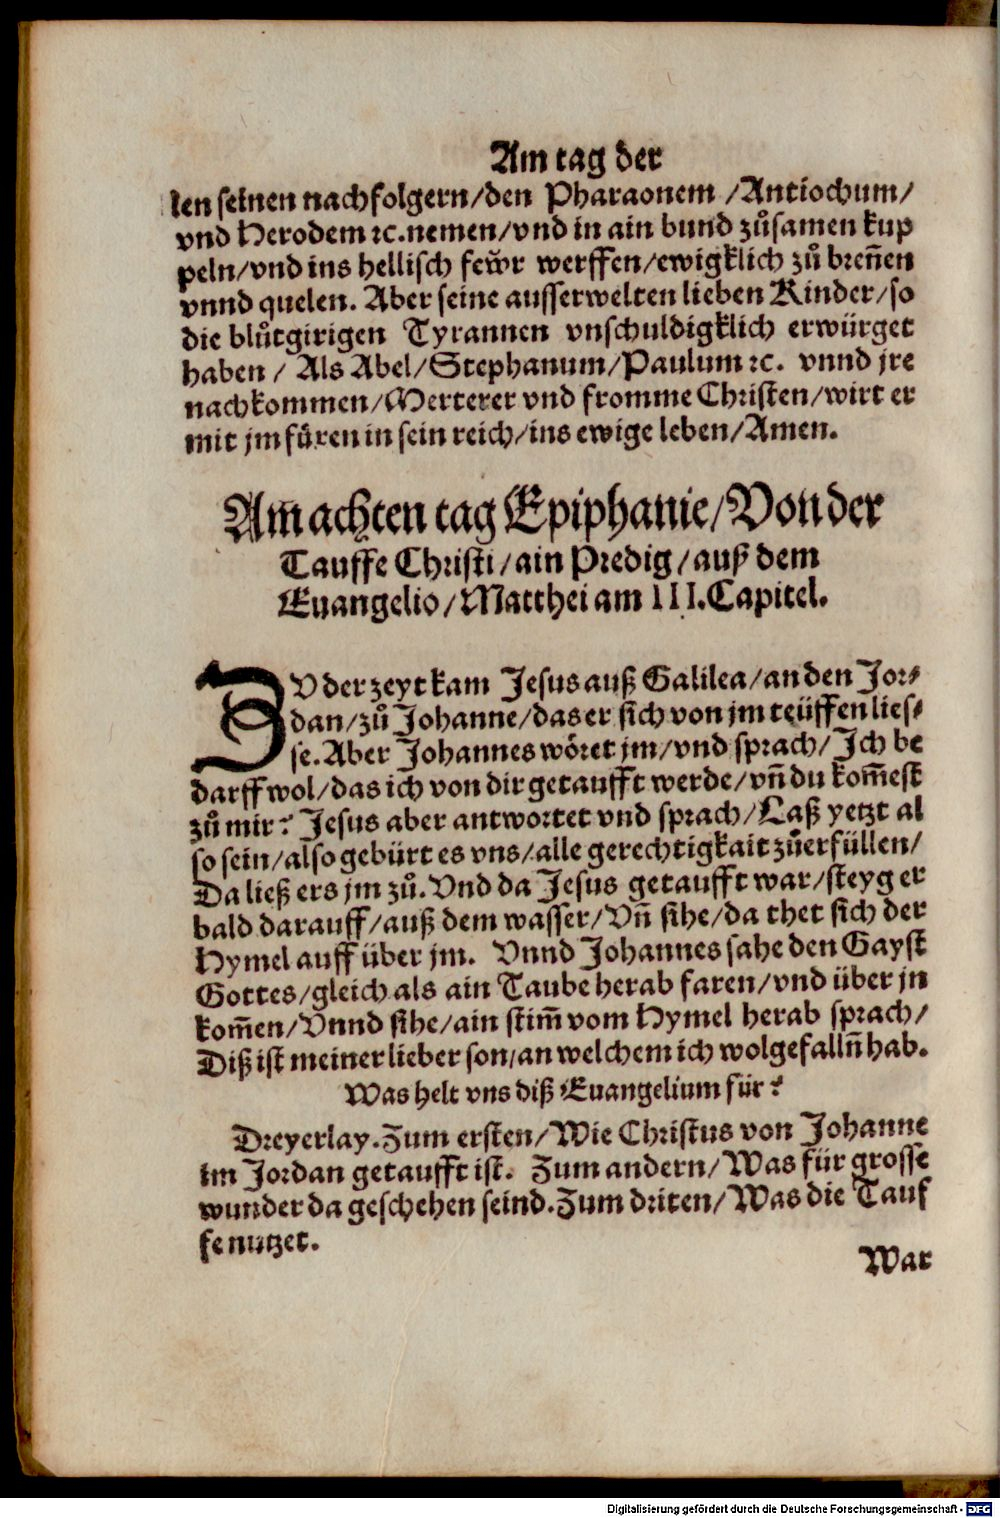 Am tag der
len seinen nachfolgern/den Pharaonem /Antiochum/
vnd Herodem ꝛc.nemen/vnd in ain bund zůsamen kup
peln/vnd ins hellisch feẅr werffen/ewigklich zů breñen
vnnd quelen. Aber seine ausserwelten lieben Kinder/so
die blůtgirigen Tyrannen vnschuldigklich erwürget
haben / Als Abel/Stephanum/Paulum ꝛc. vnnd jre
nachkommen/Merterer vnd fromme Christen/wirt er
mit jm fůren in sein reich/ins ewige leben/Amen.
Am̄ achten tag Epiphanie/Von der
Tauffe Christi/ain Predig/auß dem
Euangelio/Matthei am III.Capitel.
ZV der zeyt kam Jesus auß Galilea/an den Jor⸗
dan/zů Johanne/das er sich von jm teüffen lies⸗
se. Aber Johannes wöret jm/vnd sprach/Ich be
darff wol/das ich von dir getaufft werde/vñ du kom̄est
zů mir? Jesus aber antwortet vnd sprach/Laß yetzt al
so sein/also gebürt es vns/alle gerechtigkait zůerfüllen/
Da ließ ers jm zů. Vnd da Jesus getaufft war/steyg er
bald darauff/auß dem wasser/Vñ sihe/da thet sich der
Hymel auff über jm. Vnnd Johannes sahe den Gayst
Gottes/gleich als ain Taube herab faren/vnd über jn
kom̄en/Vnnd sihe/ain stim̄ vom Hymel herab sprach/
Diß ist meiner lieber son/an welchem ich wolgefallñ hab.
Was helt vns diß Euangelium für?
Dreyerlay. Zum ersten/Wie Christus von Johanne
im Jordan getaufft ist. Zum andern/Was für grosse
wunder da geschehen seind. Zum driten/Was die Tauf
fe nutzet.
War
Digitalisierung gefördert durch die Deutsche Forschungsgemeinschaft - DFG